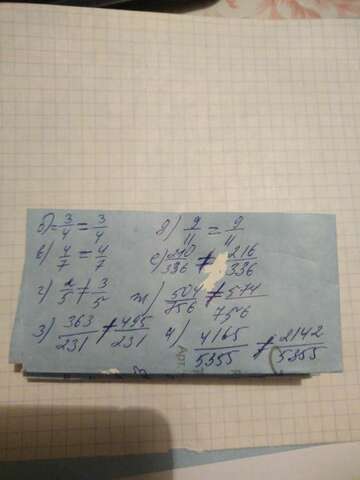 б) 3/4 = 3/4 д) 9/11 = 9/11
в) 4/7 = 4/7 е) 210/336 ≠ 216/336
г) 2/5 ≠ 3/5 ж) 504/756 ≠ 574/756
з) 363/231 ≠ 495/231 и) 4165/5355 ≠ 2142/5355